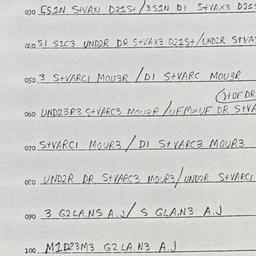 030 ES2N StVAX1 D22St/3S2N D1 StVAX3 D22S
040 S1 S2C3 UND2R DR StVAX3 D22St/UND2R StVA
050 3 StVARC1 MOU3R /D1 StVARC MOU3R
OtUF DR
060 UND23R3 StVARC3 MOU2R /UFM=UF DR StVA
070 StVARC1 MOUR3 / D1 StVARC3 MOUR3
080 UND2R DR StVARC3 MOUR3/UND2R StVARC1
090 3 G2LA.NS A.J/ S GLA.N3 A.J
100 M1D23M3 G2LA.N3 A.J